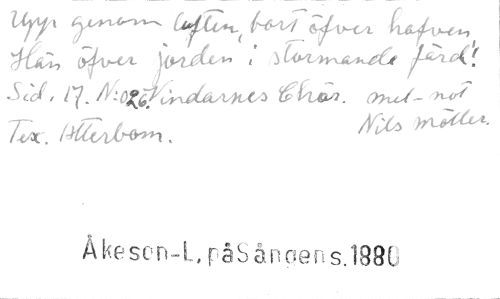 Upp genom luften, bort öfver hafven
Hän öfver jorden i stormande färd!
Sid. 17. N:o 26. Vindarnes Chör. mel-not
Tex. Atterbom. Nils Möller.
Åkeson-L, påSångens.1880